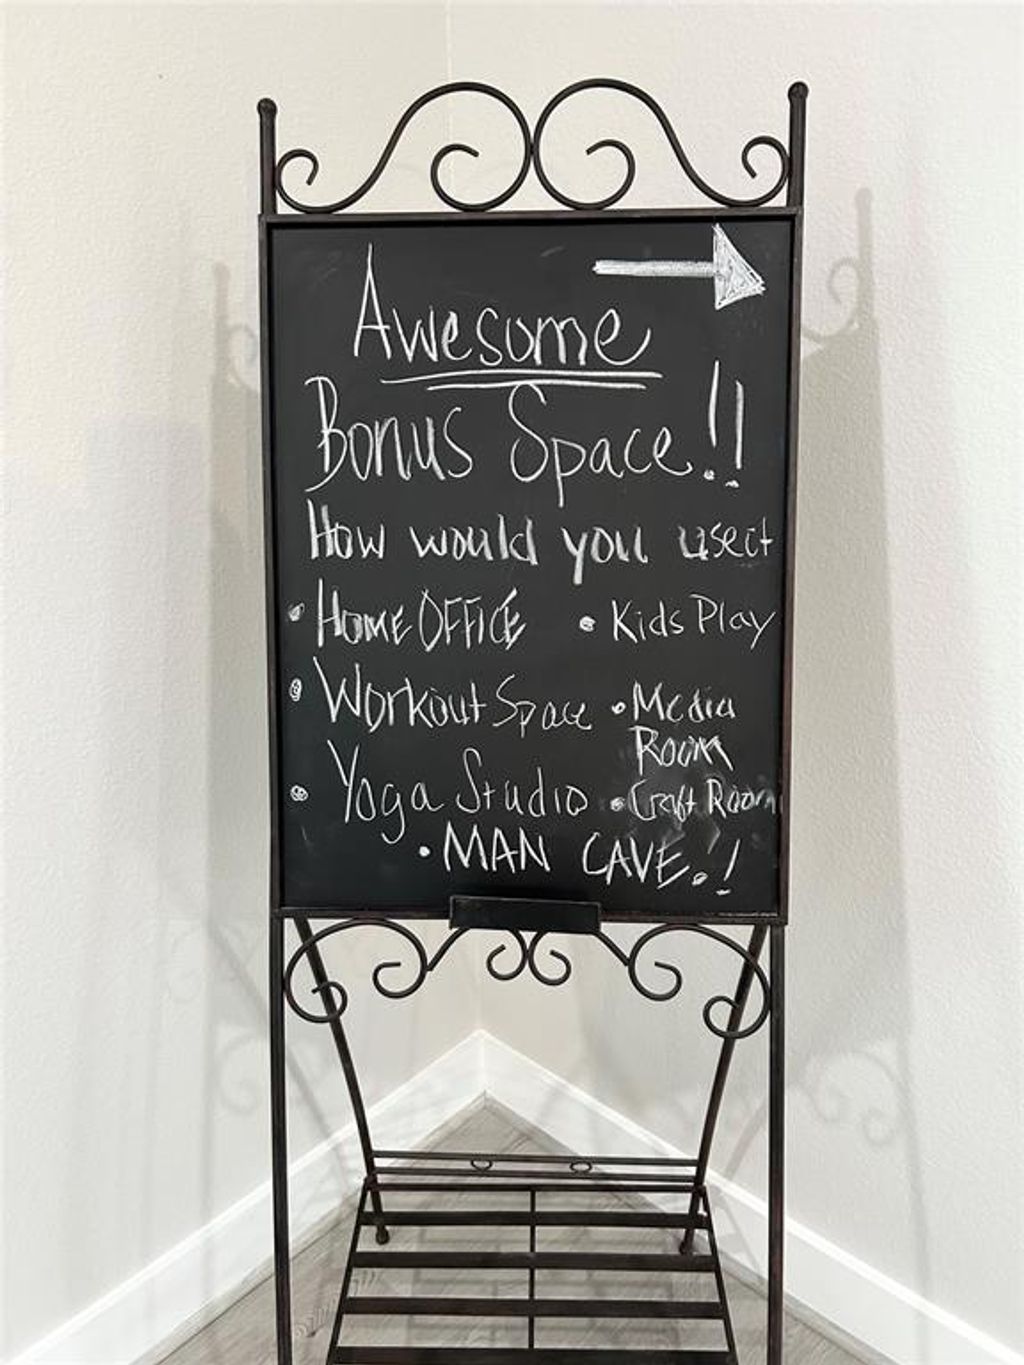 Awesome
Bonus Space!!
How would you use it
• HOME OFFICE • Kids Play
• Workout Space • Media Room
• Yoga Studio • Craft Room
• MAN CAVE!!